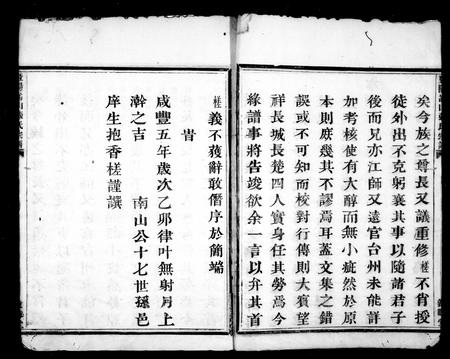 矣今族之尊長又議重修槎不肖授
徒外出不克躬襄其事以隨諸君子
後而兄亦江師又遠官台州未能詳
加考核使有大醇而無小疵然於原
本則庶幾其不謬焉耳蓋文集之錯
誤或不可知而校對行傳則大賓望
祥長城長楚四人實身任其勞焉今
緣譜事將告竣欲余一言以弁其首
槎義不獲辭敢僭序於簡端
旹
咸豐五年歲次乙卯律叶無射月上
澣之吉 南山公十七世孫邑
庠生抱香槎謹譔